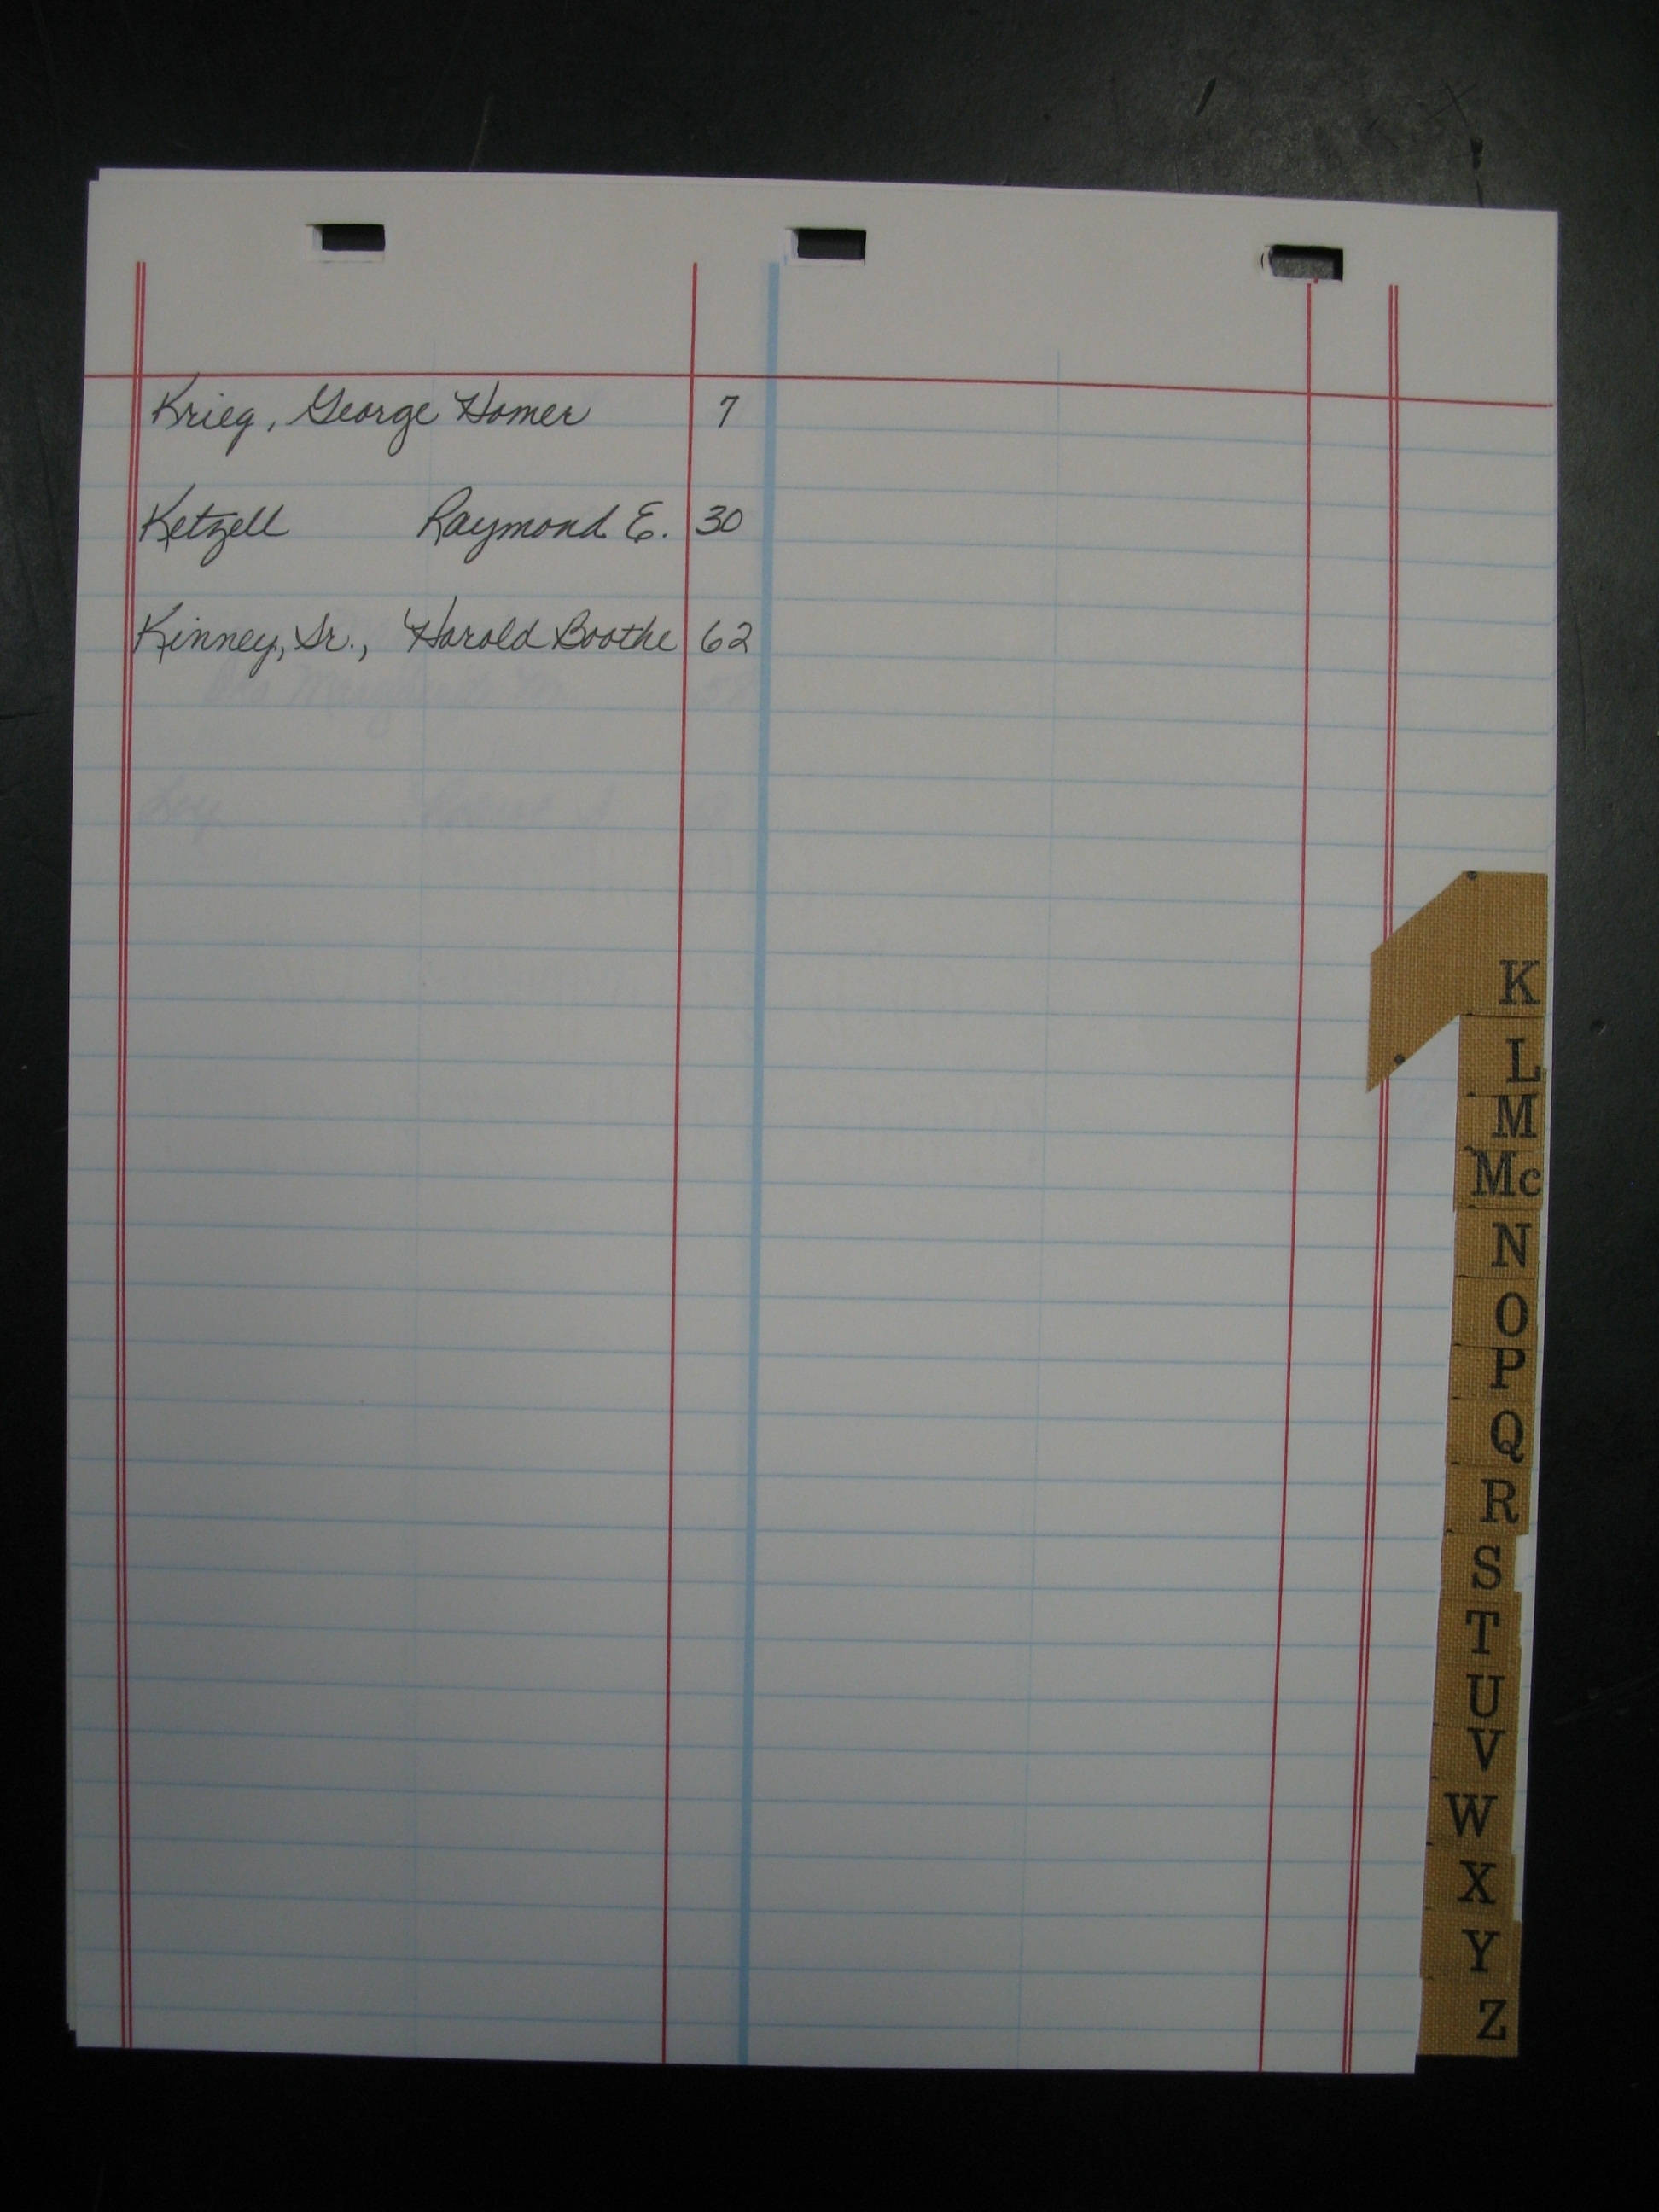 Krieg, George Homer 7
Ketzell Raymond E. 30
Kinney, Sr., Harold Boothe 62
Loy
K
L
M
Mc
N
O
P
Q
R
S
T
U
V
W
X
Y
Z